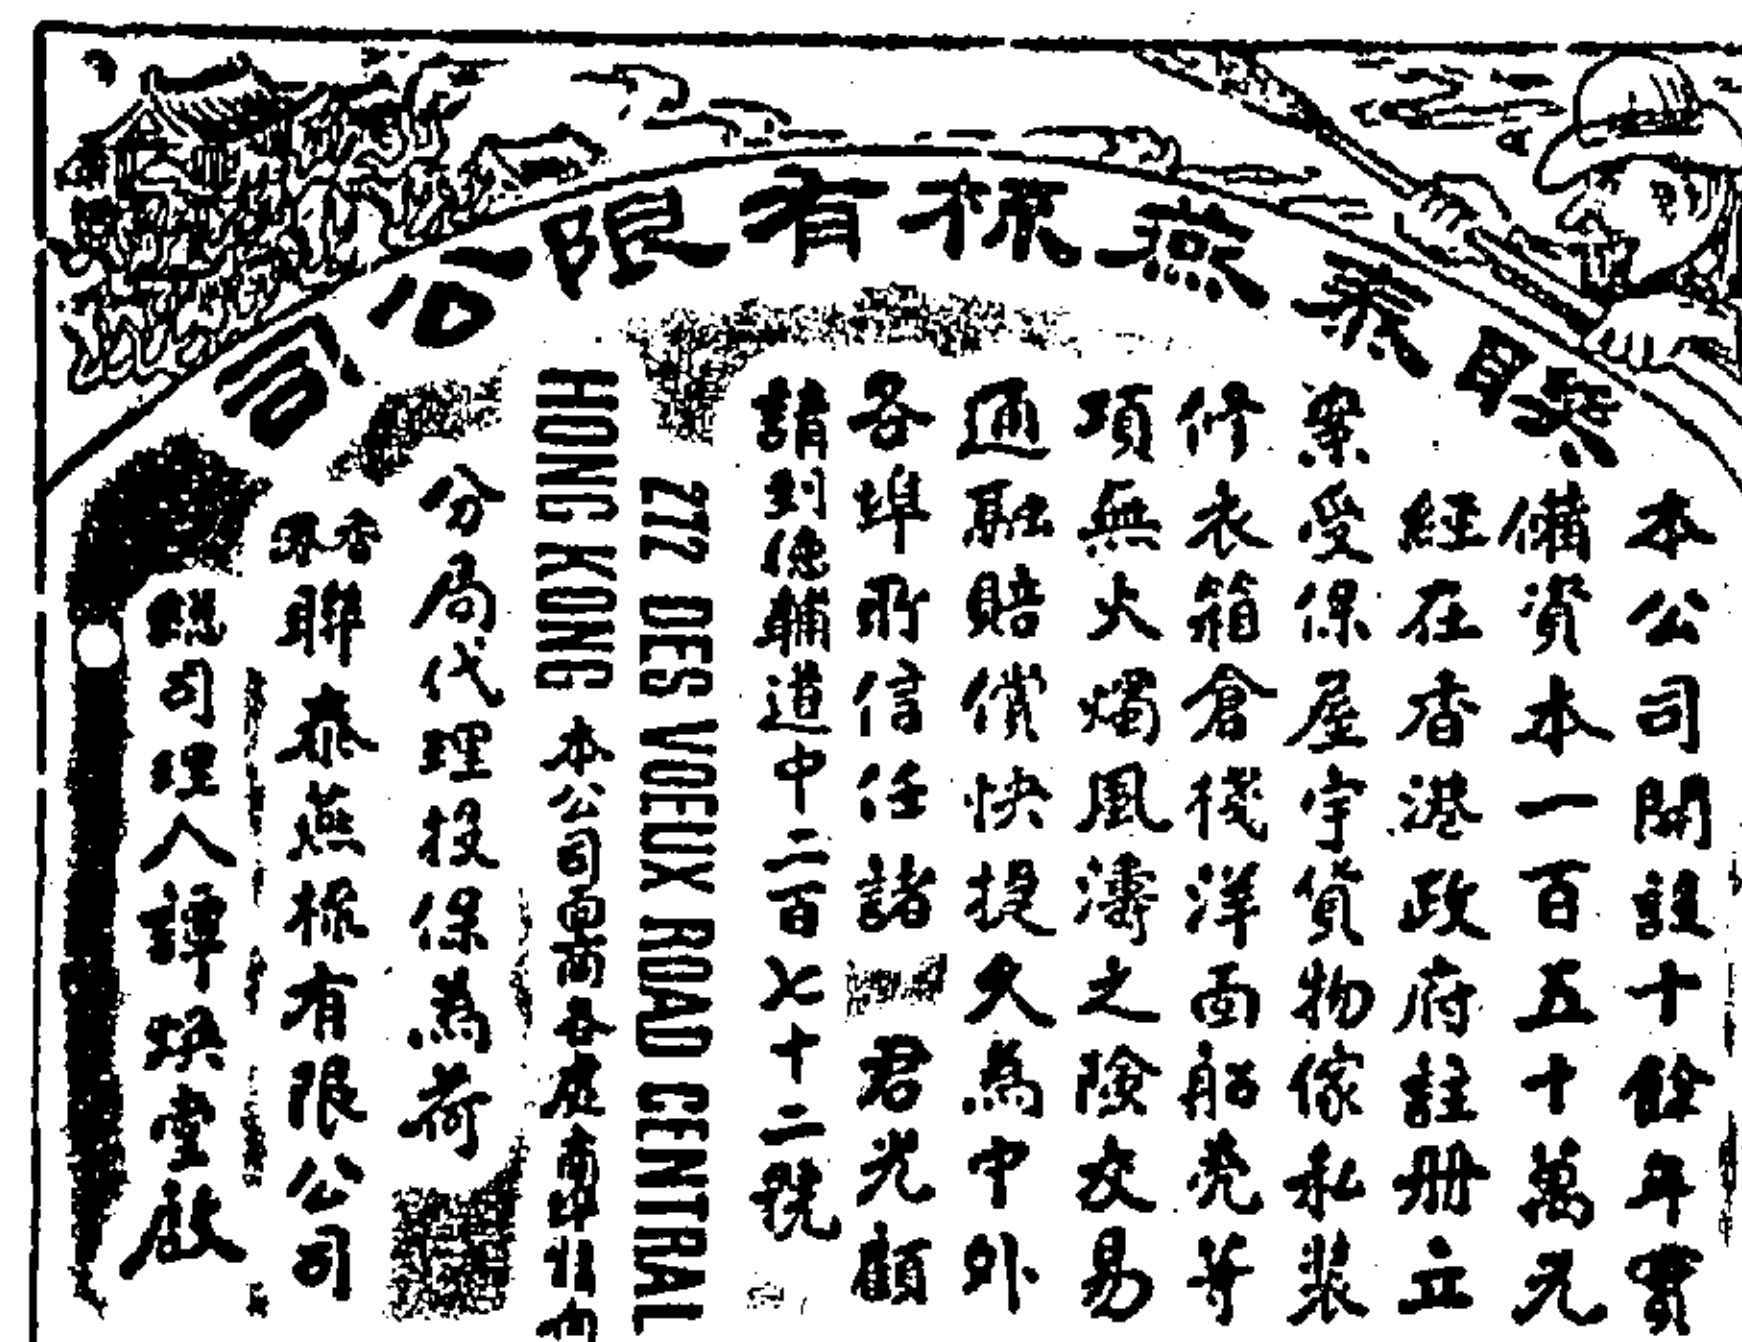 聯泰燕梳有限公司
本公司開設十餘年實
備資本一百五十萬元
經在香港政府註册立
案受保屋宇貨物傢私裝
修衣箱倉棧洋面船壳等
項無火燭風濤之險交易
通融賠償快捷久為中外
各埠所信任諸君光顧
請到德輔道中二百七十二號
272 DES VOEUX ROAD CENTRAL
HONG KONG
本公司
各處
分局代理投保為荷
香
聯泰燕梳有限公司
總司理人譚煥堂啟